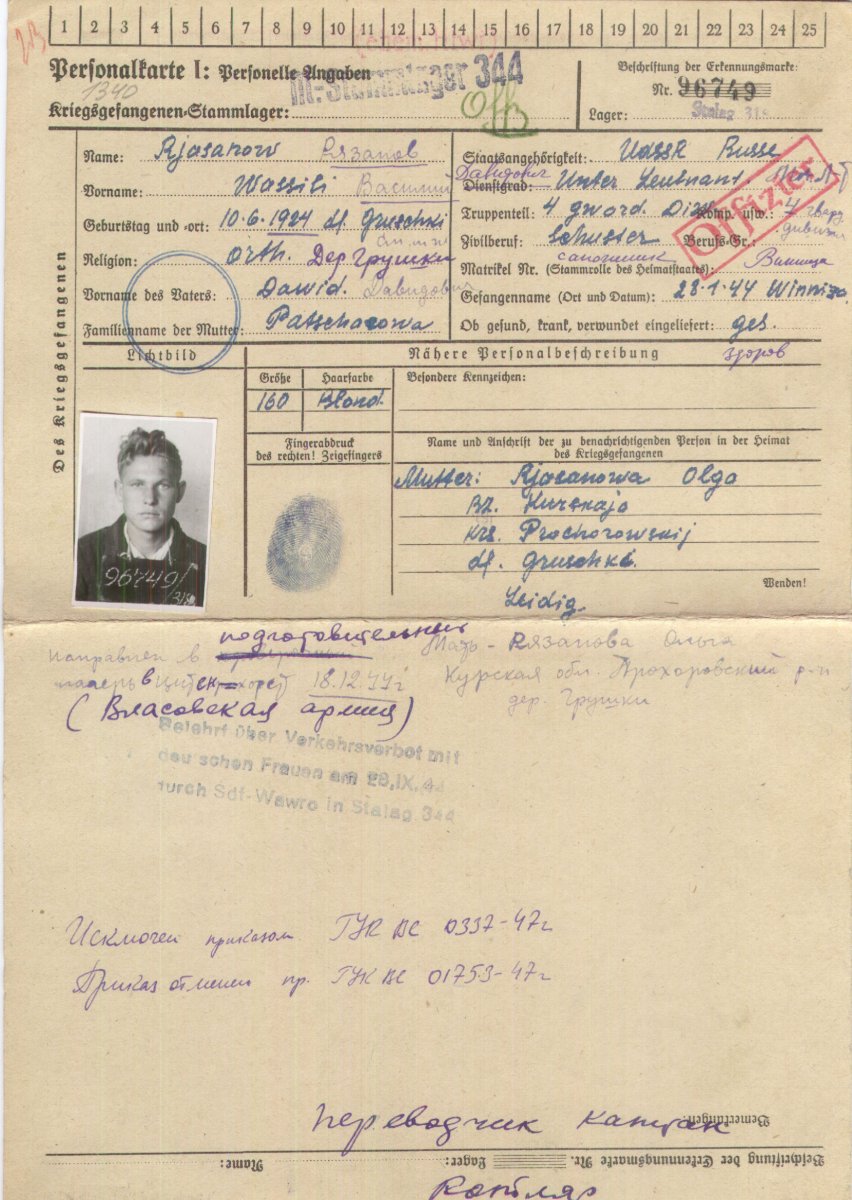 1 2 3 4 5 6 7 8 9 10 11 12 13 14 15 16 17 18 19 20 21 22 23 24 25
Personalkarte I: Personelle Angaben
1340
M.-Stammlager 344
Off
Kriegsgefangenen-Stammlager:
Beschriftung der Erkennungsmarke:
Nr. 96749
Lager: Stalag 318
Des Kriegsgefangenen
Name: Rjasanow Рязанов
Vorname: Wassili Василий Давидович
Geburtstag und -ort: 10.6.1924 df. Gruschki
Religion: orth. Дер Грушки
Vorname des Vaters: Dawid. Давидович
Familienname der Mutter:
Staatsangehörigkeit: UdSSR Russe
Dienstgrad: Unter Leutnant.
Offizier
Truppenteil: 4 gward. Div. Komp. usw.: 4 гвард дивизия
Zivilberuf: Schuster Berufs-Gr.:
сапожник
Matrikel Nr. (Stammrolle des Heimatstaates): Винница
Gefangenname (Ort und Datum): 28.1.44 Winniza.
Ob gesund, krank, verwundet eingeliefert: ges.
здоров
Lichtbild
Nähere Personalbeschreibung
Größe Haarfarbe Besondere Kennzeichen:
160 Blond.
Fingerabdruck
des rechten! Zeigefingers
Name und Anschrift der zu benachrichtigenden Person in der Heimat
des Kriegsgefangenen
Mutter: Rjasanowa Olga
Bz. Kurskaja
Krs. Prochorowskij
df. Gruschki.
Wenden!
Ledig
96749
318
Направлен в подготовительный
лагерь в 18.12.44г
(Власовская армия)
Мать - Рязанова Ольга
Курская обл. Прохоровский р-н
дер. Грушки
Belehrt über Verkehrsverbot mit
deutschen Frauen am 28.IX.44
durch Sdf-Wawro in Stalag 344
Исключен приказом ГУК ВС 0337-47г
Приказ отменен пр. ГУК ВС 01753-47г
Bemerkungen:
Переводчик капитан
Beschriftung der Erkennungsmarke Nr. Lager: Name:
Котляр